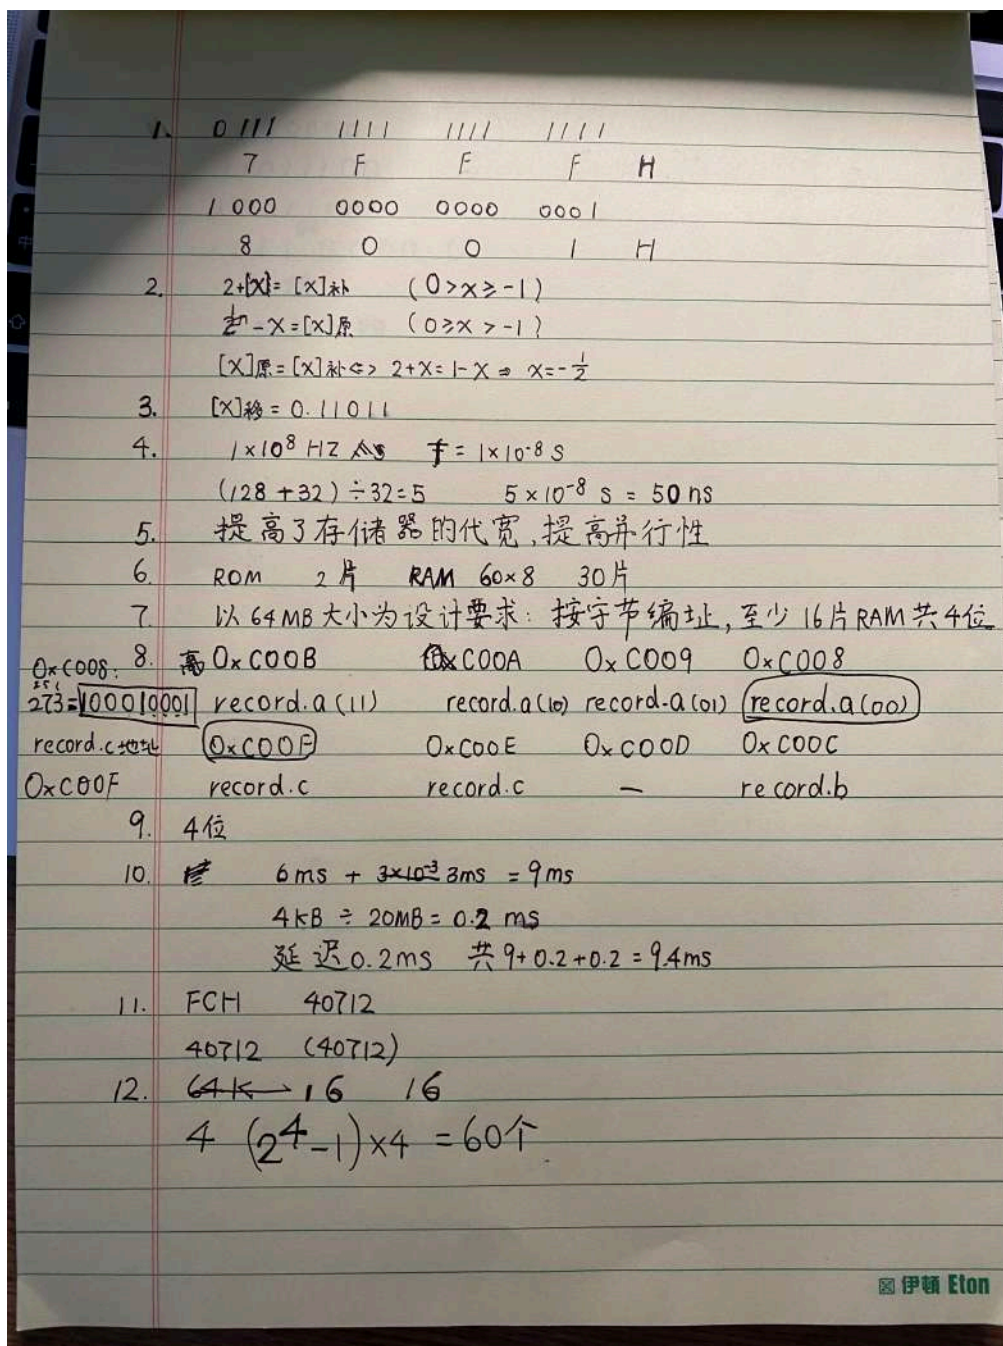 1. 0111 1111 1111 1111
7 F F F H
1000 0000 0000 0001
8 0 0 1 H
2. 2+[X]=[X]补 (0>x≥-1)
-X=[X]原 (0≥x>-1)
[X]原=[X]补<=> 2+X=1-X => X=-1/2
3. [X]移=0.11011
4. 1×10⁸ HZ T=1×10⁻⁸ S
(128+32)÷32=5 5×10⁻⁸ S=50ns
5. 提高了存储器的代宽,提高并行性
6. ROM 2片 RAM 60×8 30片
7. 以64MB大小为设计要求:按字节编址,至少16片RAM共4位
8. 高 0xC00B 0xC00A 0xC009 0xC008
0xC008:
273=100010001 record.a(11) record.a(10) record.a(01) record.a(00)
record.c地址 0xC00F 0xC00E 0xC00D 0xC00C
0xC00F record.c record.c — record.b
9. 4位
10. 6ms + 3×10⁻³ 3ms = 9ms
4KB÷20MB=0.2 ms
延迟0.2ms 共9+0.2+0.2=9.4ms
11. FCH 40712
40712 (40712)
12. 64K 16 16
4 (2⁴-1)×4=60个
伊頓 Eton